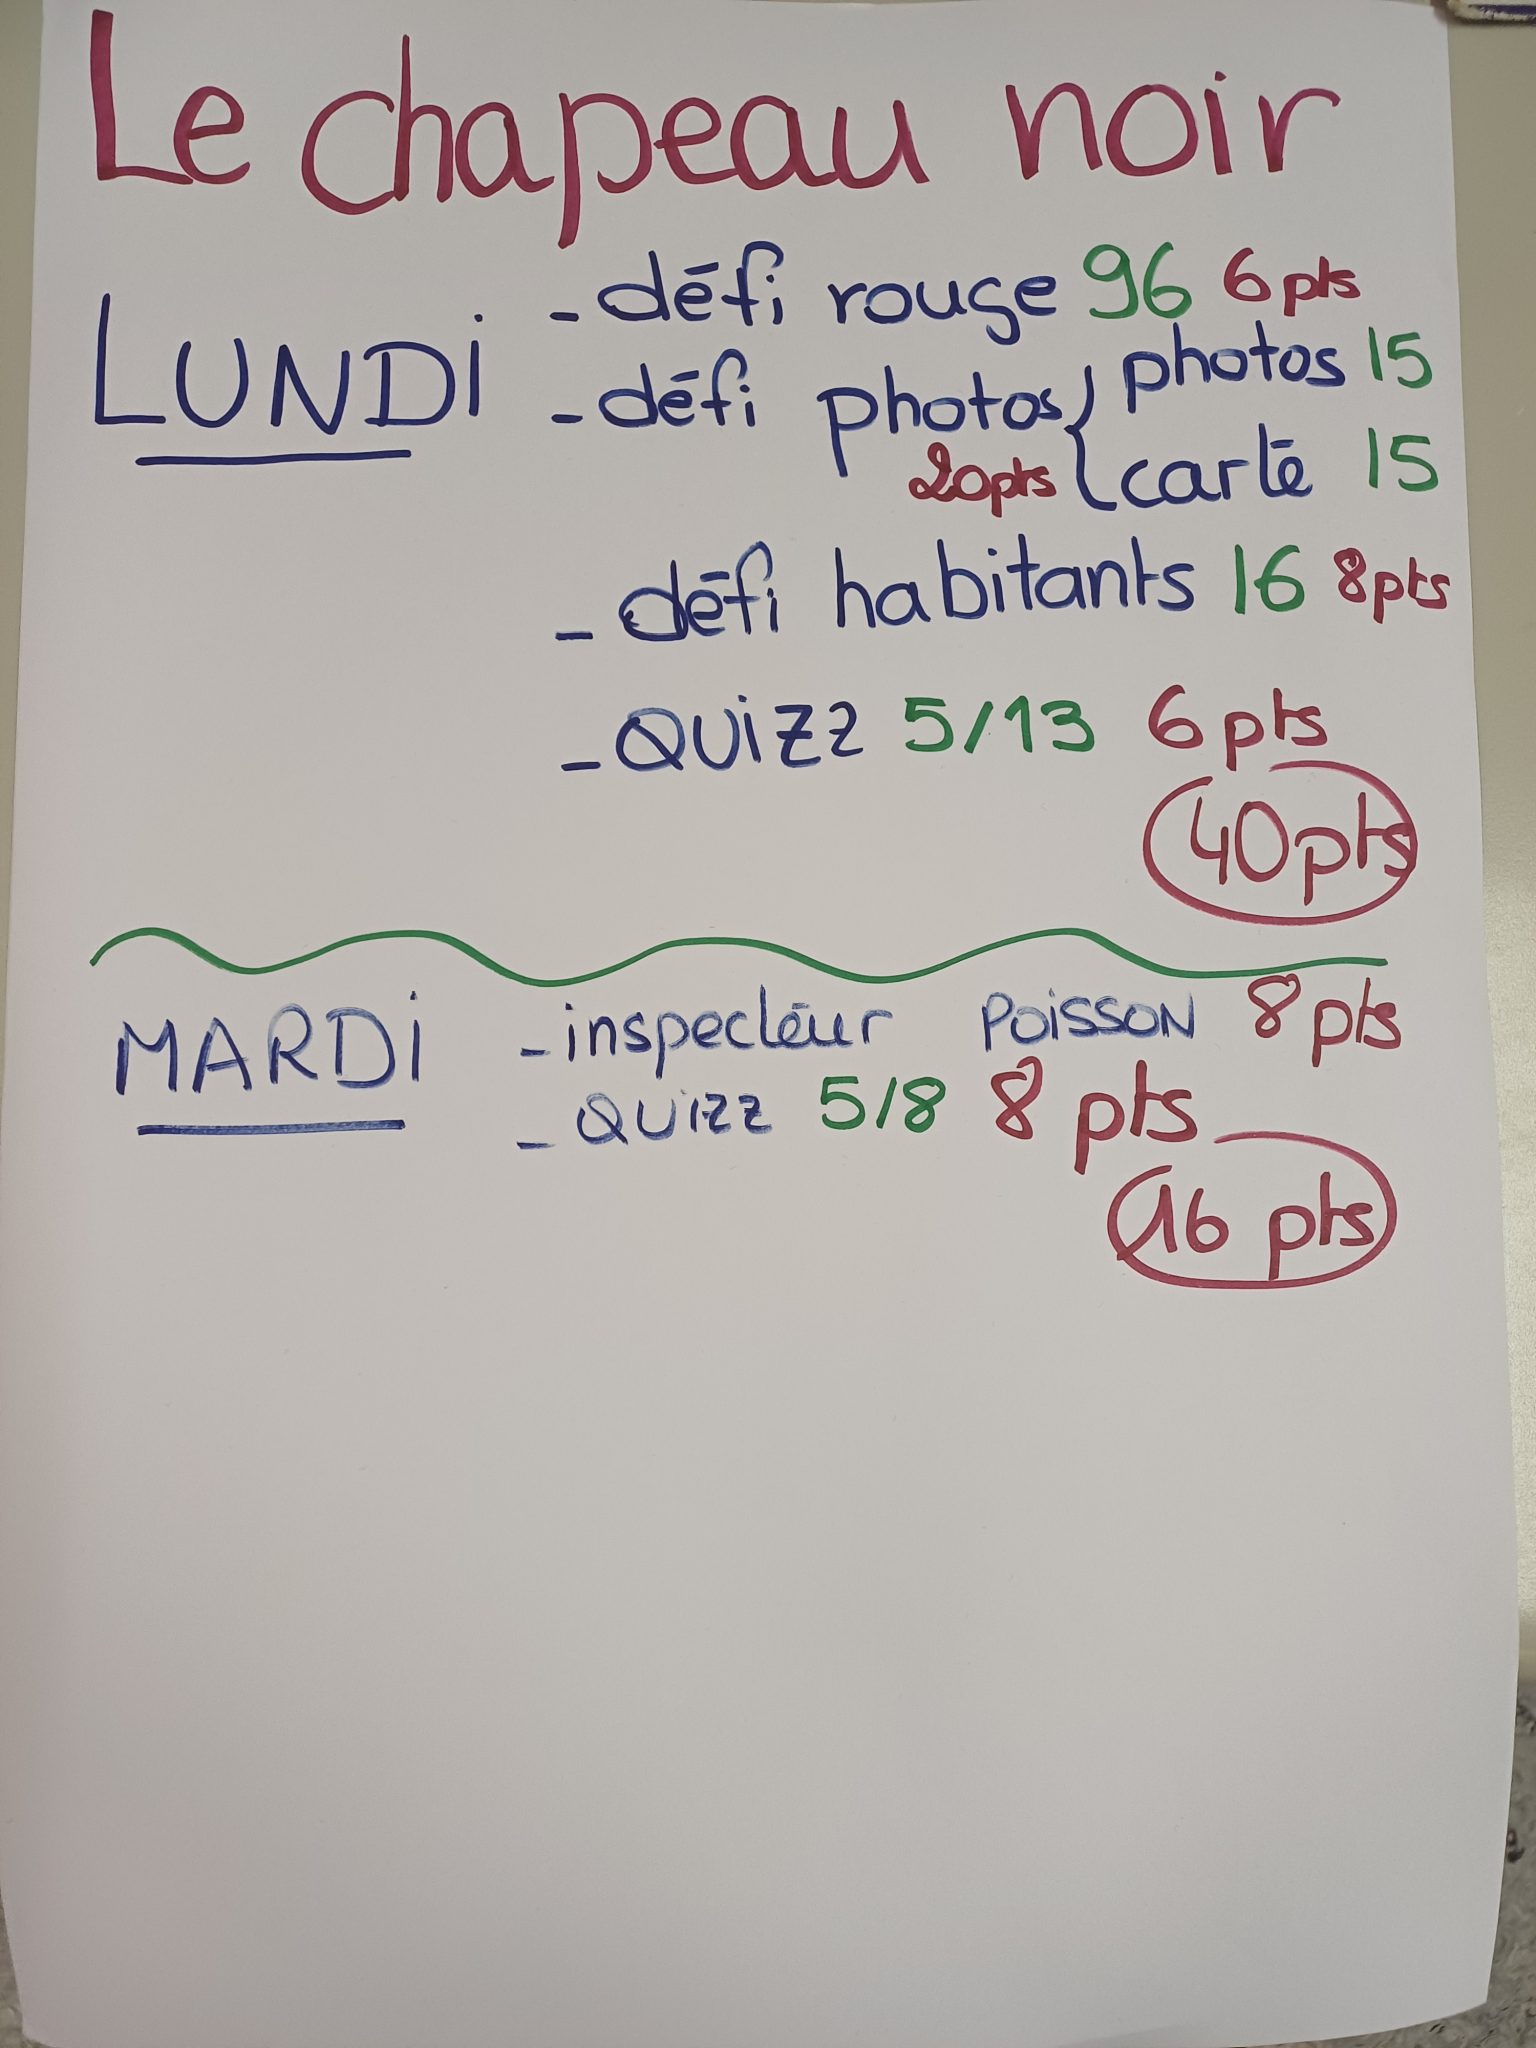 Le chapeau noir
LUNDi
- défi rouge 96 6 pts
- défi photos { photos 15
20 pts carte 15
- défi habitants 16 8 pts
- QUiZZ 5/13 6 pts
40 pts
MARDi
- inspecteur POiSSON 8 pts
- QUiZZ 5/8 8 pts
16 pts